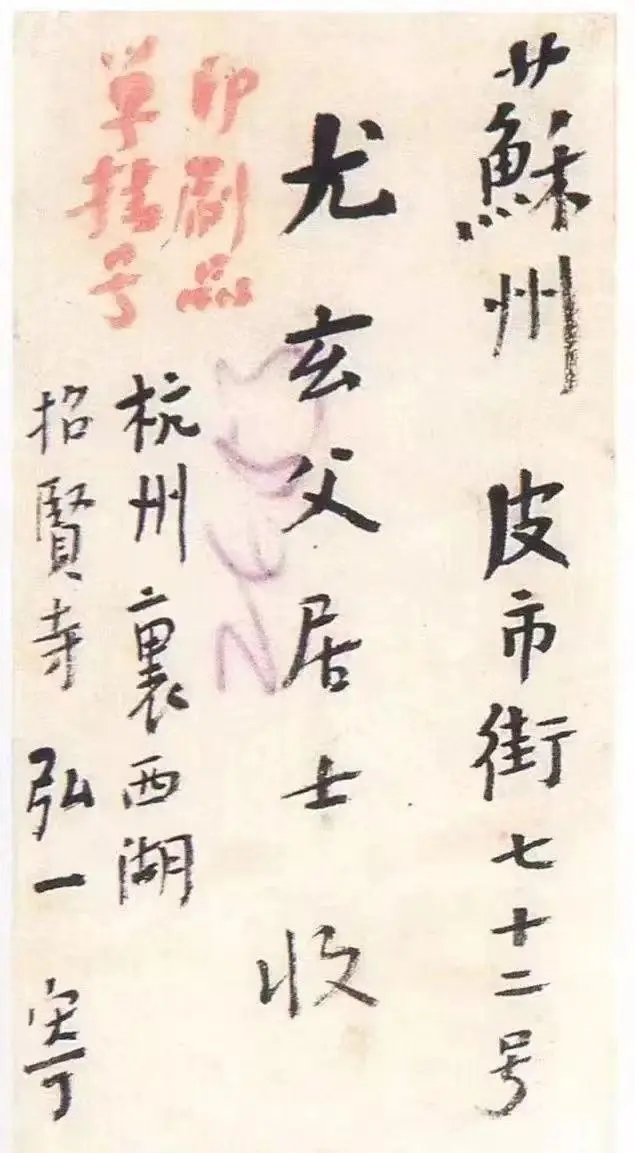 蘇州 皮市街七十二号
尤玄父居士 收
印刷品
单挂号
杭州裏西湖
招賢寺 弘一 寄